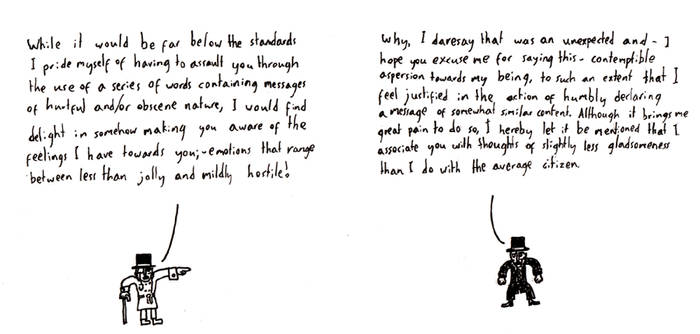 While it would be far below the standards
I pride myself of having to assault you through
the use of a series of words containing messages
of hurtful and/or obscene nature, I would find
delight in somehow making you aware of the
feelings I have towards you;-emotions that range
between less than jolly and mildly hostile!
Why, I daresay that was an unexpected and - I
hope you excuse me for saying this - contemptible
aspersion towards my being, to such an extent that I
feel justified in the action of humbly declaring
a message of somewhat similar content. Although it brings me
great pain to do so, I hereby let it be mentioned that I
associate you with thoughts of slightly less gladsomeness
than I do with the average citizen.